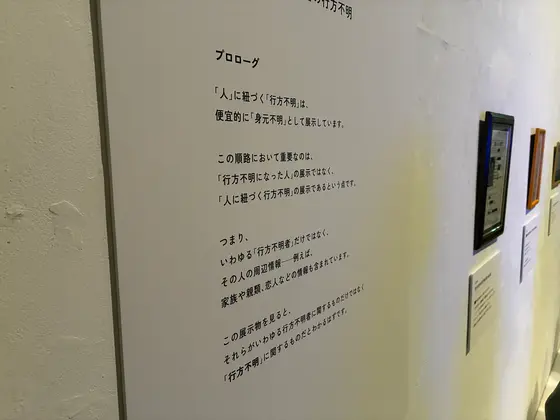 の行方不明
プロローグ
「人」に紐づく「行方不明」は、
便宜的に「身元不明」として展示しています。
この順路において重要なのは、
「行方不明になった人」の展示ではなく、
「人に紐づく行方不明」の展示であるという点です。
つまり、
いわゆる「行方不明者」だけではなく、
その人の周辺情報──例えば、
家族や親類、恋人などの情報も含まれています。
この展示物を見ると、
それらがいわゆる行方不明者に関するものだけではなく
「行方不明」に関するものだとわかるはずです。